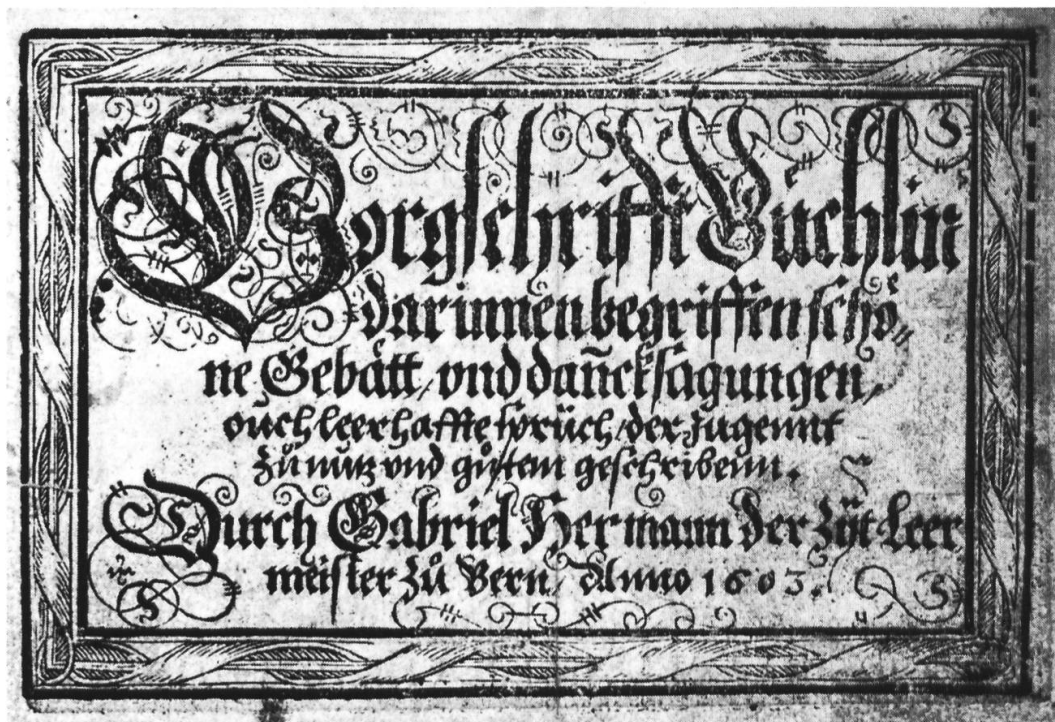 Vorgschrifft Büchlin
darinnen begriffen schö-
ne Gebätt, vnd dañcksagungen,
ouch leerhaffte sprüch, der Jugennt
zů nutz vnd gůtem geschribenn.
Durch Gabriel Hermann der Zÿt Leer
meister zů Bern, Anno 1603.